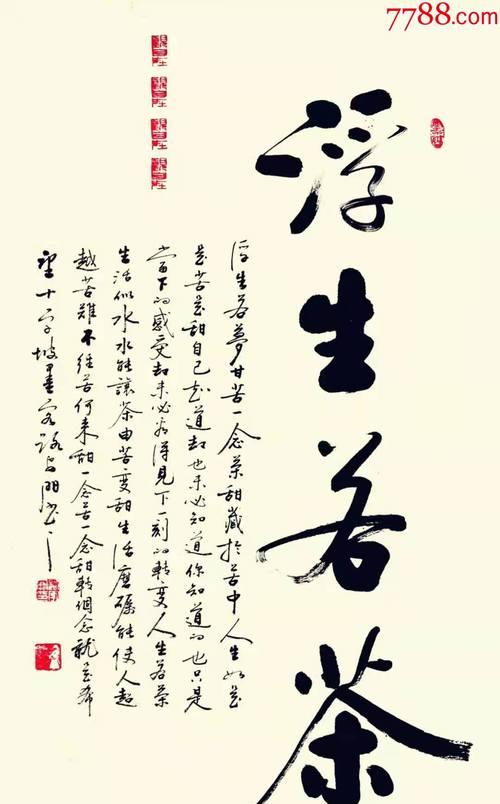 7788.com
浮生若茶
浮生若夢甘苦一念茶甜藏於苦中人生如
是苦是甜自己知道却也未必知道你知道的也只是
當下的感受却未必看得見下一刻的轉變人生若茶
生活似水水能讓茶由苦變甜生活磨礪能使人超
越苦難不經苦何來甜一念苦一念甜轉個念就是希
望十字坡畫客